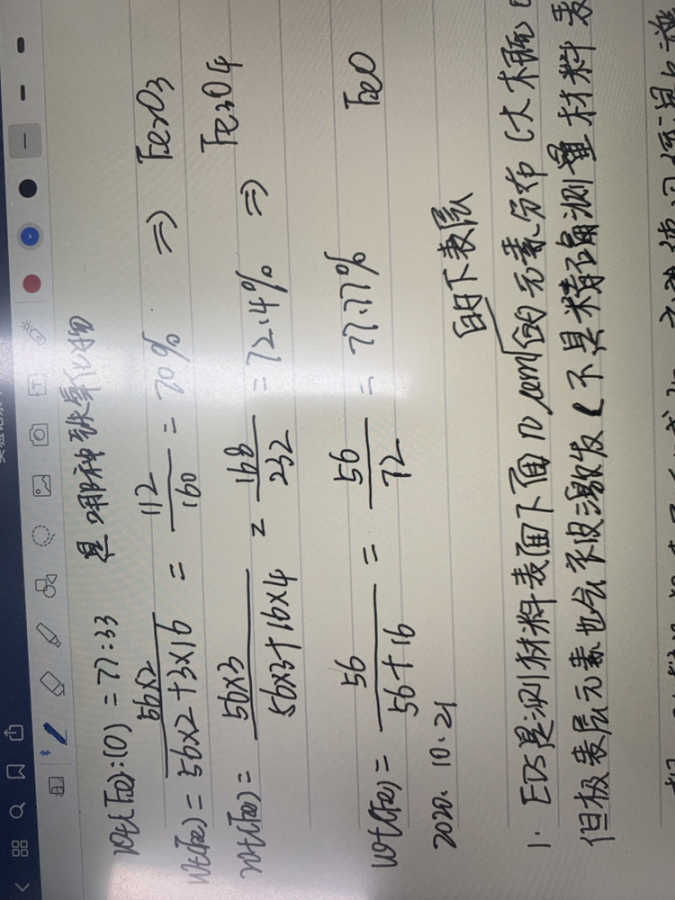 wt(Fe):(O) = 77:33 是哪种铁氧化物
wt(Fe) = 56×2 / 56×2+3×16 = 112 / 160 = 70% ⇒ Fe2O3
wt(Fe) = 56×3 / 56×3+16×4 = 168 / 232 = 72.4% ⇒ Fe3O4
wt(Fe) = 56 / 56+16 = 56 / 72 = 77.77% FeO
2020.10.21
的下表层
1. EDS是测材料表面下面10μm的元素分布(大概
但极表层元素也会被激发(不具精确测量材料表